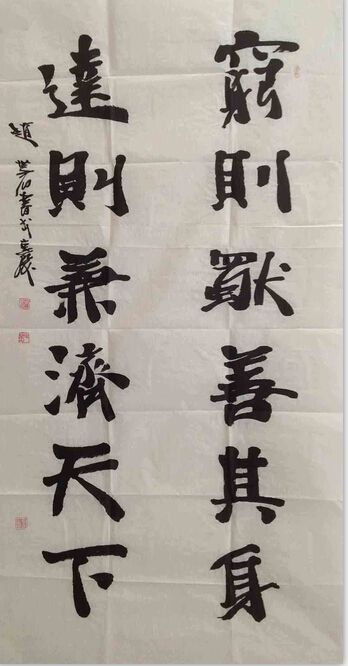 窮則獨善其身
達則兼濟天下
趙